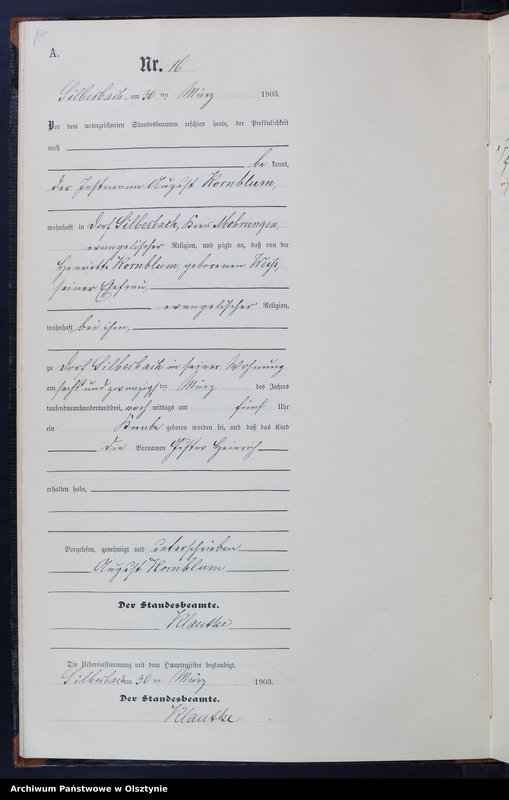 A.
Nr. 16
Silberbach, am 30 ten März 1903.
Vor dem unterzeichneten Standesbeamten erschien heute, der Persönlichkeit
nach
be kannt,
der August Kornblum,
wohnhaft in Dorf Silberbach, Kreis Mohrungen,
evangelischer Religion, und zeigte an, daß von der
Henriette Kornblum, geborenen Weiß,
seiner Ehefrau,
evangelischer Religion,
wohnhaft bei ihm,
zu Dorf Silberbach in seiner Wohnung
am sechs und zwanzigsten März des Jahres
tausendneunhundertunddrei, nach mittags um fünf Uhr
ein Knabe geboren worden sei, und daß das Kind
die Vornamen Gustav Heinrich
erhalten habe,
Vorgelesen, genehmigt und unterschrieben
August Kornblum
Der Standesbeamte.
Klautke
Die Uebereinstimmung mit dem Hauptregister beglaubigt.
Silberbach am 30 ten März 1903.
Der Standesbeamte.
Klautke
Archiwum Państwowe w Olsztynie